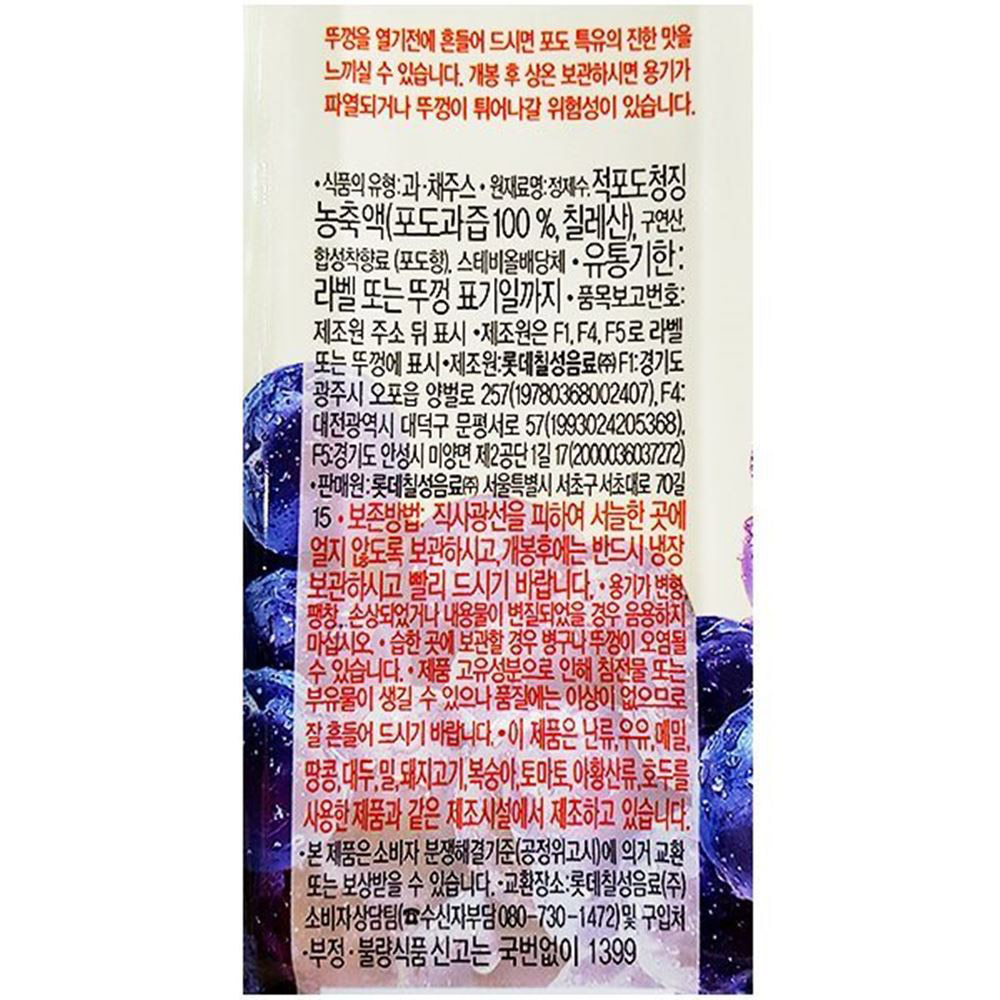 뚜껑을 열기전에 흔들어 드시면 포도 특유의 진한 맛을
느끼실 수 있습니다. 개봉 후 상온 보관하시면 용기가
파열되거나 뚜껑이 튀어나갈 위험성이 있습니다.
•식품의 유형:과·채주스 • 원재료명:정제수, 적포도청징
농축액(포도과즙 100 %, 칠레산), 구연산,
합성착향료 (포도향), 스테비올배당체 • 유통기한:
라벨 또는 뚜껑 표기일까지 • 품목보고번호:
제조원 주소 뒤 표시 •제조원은 F1, F4, F5로 라벨
또는 뚜껑에 표시•제조원:롯데칠성음료㈜ F1:경기도
광주시 오포읍 양벌로 257(19780368002407), F4:
대전광역시 대덕구 문평서로 57(1993024205368),
F5:경기도 안성시 미양면 제2공단 1길 17(2000036037272)
•판매원:롯데칠성음료㈜ 서울특별시 서초구 서초대로 70길
15 • 보존방법: 직사광선을 피하여 서늘한 곳에
얼지 않도록 보관하시고, 개봉후에는 반드시 냉장
보관하시고 빨리 드시기 바랍니다. • 용기가 변형,
팽창, 손상되었거나 내용물이 변질되었을 경우 음용하지
마십시오. • 습한 곳에 보관할 경우 병구나 뚜껑이 오염될
수 있습니다. • 제품 고유성분으로 인해 침전물 또는
부유물이 생길 수 있으나 품질에는 이상이 없으므로
잘 흔들어 드시기 바랍니다. •이 제품은 난류, 우유, 메밀,
땅콩, 대두, 밀, 돼지고기, 복숭아, 토마토, 아황산류, 호두를
사용한 제품과 같은 제조시설에서 제조하고 있습니다.
•본 제품은 소비자 분쟁해결기준(공정위고시)에 의거 교환
또는 보상받을 수 있습니다. •교환장소:롯데칠성음료(주)
소비자상담팀(☎수신자부담 080-730-1472)및 구입처
•부정·불량식품 신고는 국번없이 1399